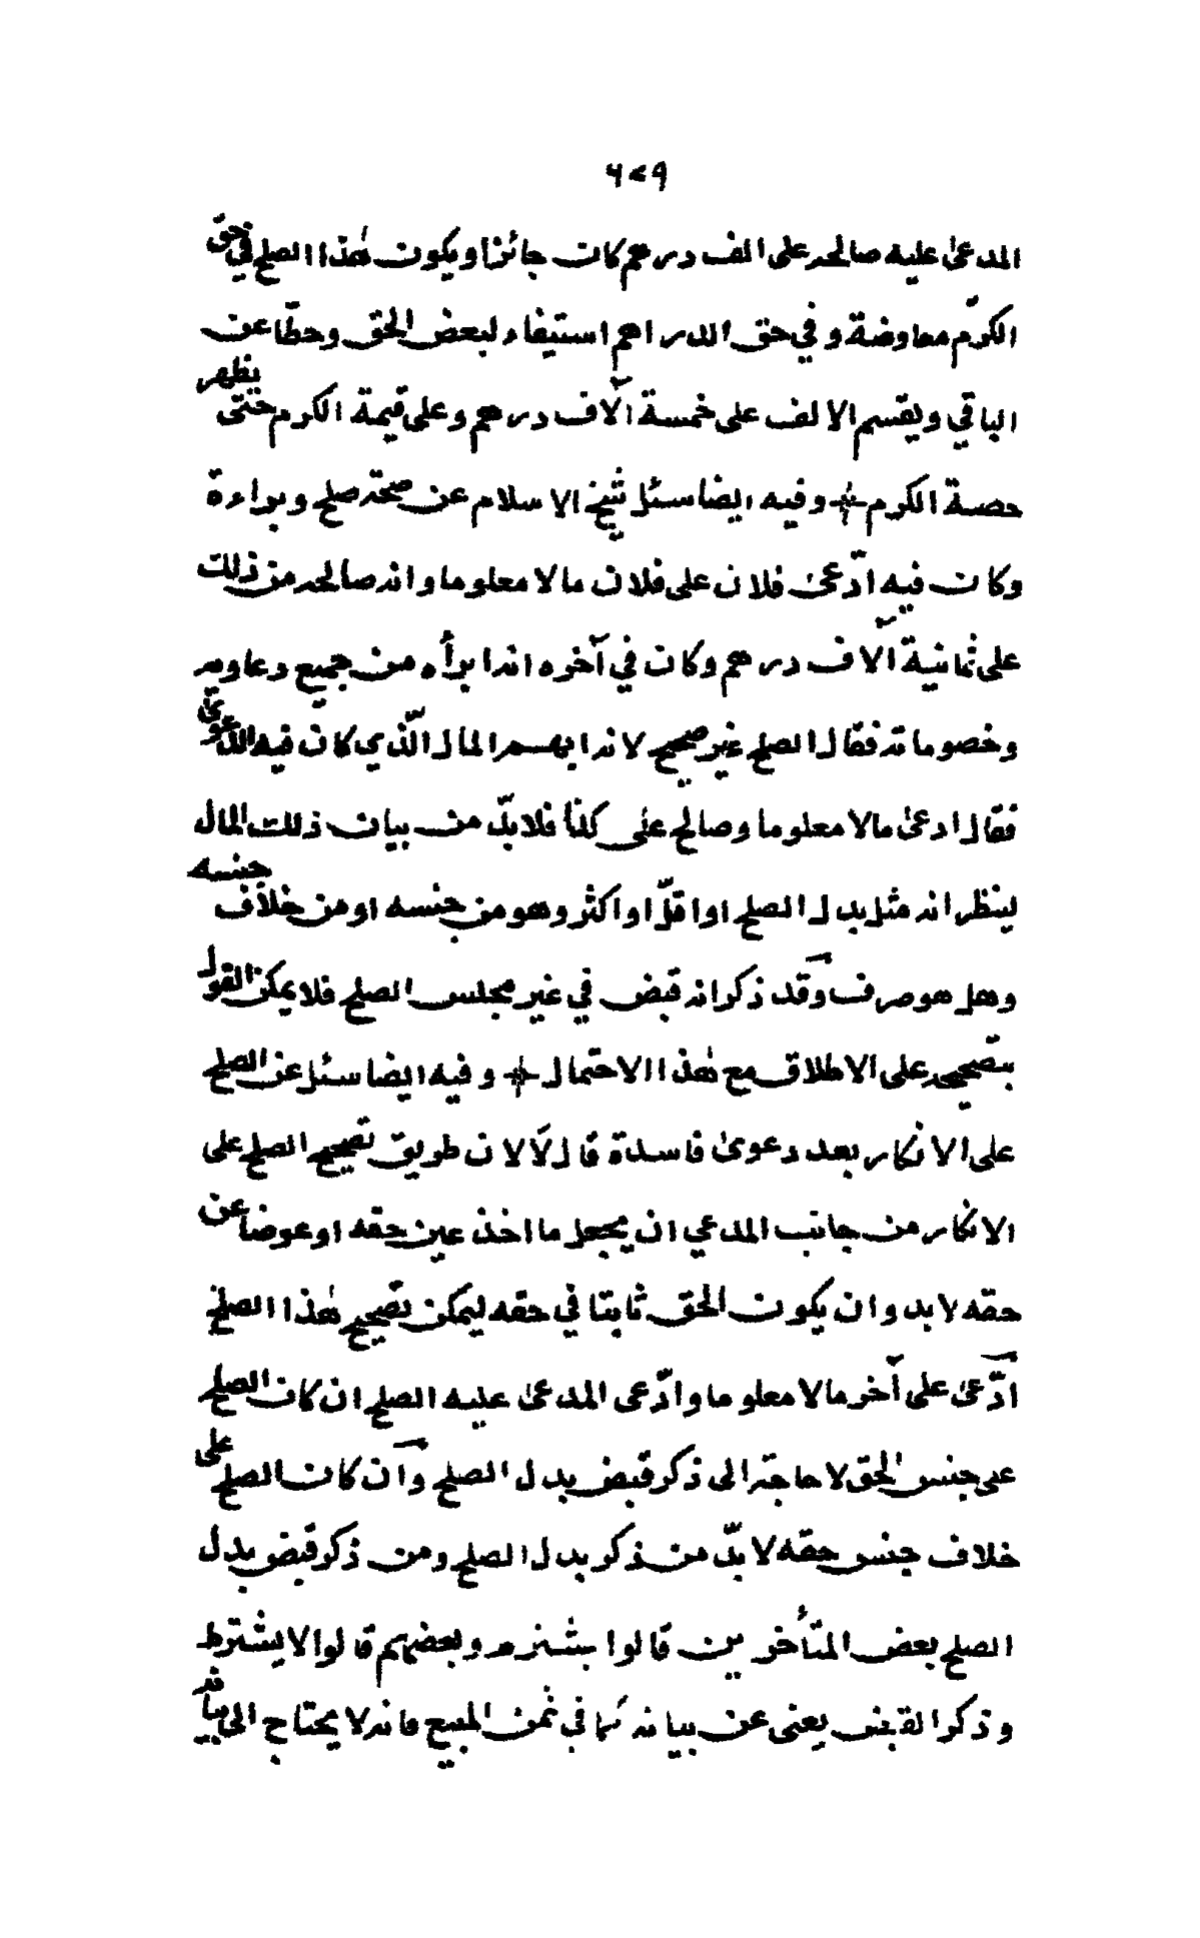 ٦٧٩
المدعى عليه صالحه على الف درهم كان جائزا ويكون هذا الصلح في حق
الكرم معاوضة وفي حق الدراهم استيفاء لبعض الحق وحطّا عن
الباقي ويقسم الالف على خمسة آلاف درهم وعلى قيمة الكرم حتى يظهر
حصة الكرم وفيه ايضا سئل شيخ الاسلام عن صحة صلح وبراءة
وكان فيه ادّعى فلان على فلان مالا معلوما وانه صالحه من ذلك
على ثمانية آلاف درهم وكان في آخره انه ابرأه من جميع دعاويه
وخصوماته فقال الصلح غير صحيح لانه ابهم المال الّذي كان فيه الدعوى
فقال ادعى مالا معلوما وصالح على كذا فلا بدّ من بيان ذلك المال
لينظر انه مثل بدل الصلح او اقلّ او اكثر وهو من جنسه او من خلاف جنسه
وهل هو صرف وقد ذكر انه قبض في غير مجلس الصلح فلا يمكن القول
بتصحيحه على الاطلاق مع هذا الاحتمال وفيه ايضا سئل عن الصلح
على الانكار بعد دعوى فاسدة قال لا لان طريق تصحيح الصلح على
الانكار من جانب المدعي ان يجعل ما اخذ عين حقه او عوضا عن
حقه لا بد وان يكون الحق ثابتا في حقه ليمكن تصحيح هذا الصلح
ادّعى على آخر مالا معلوما وادّعى المدعى عليه الصلح ان كان الصلح
على جنس الحق لا حاجة الى ذكر قبض بدل الصلح وان كان الصلح على
خلاف جنس حقه لا بدّ من ذكر بدل الصلح ومن ذكر قبض بدل
الصلح بعض المتأخرين قالوا بشترط وبعضهم قالوا لا يشترط
وذكر القبض يغنى عن بيانه كما في ثمن المبيع فانه لا يحتاج الى بيان قدر